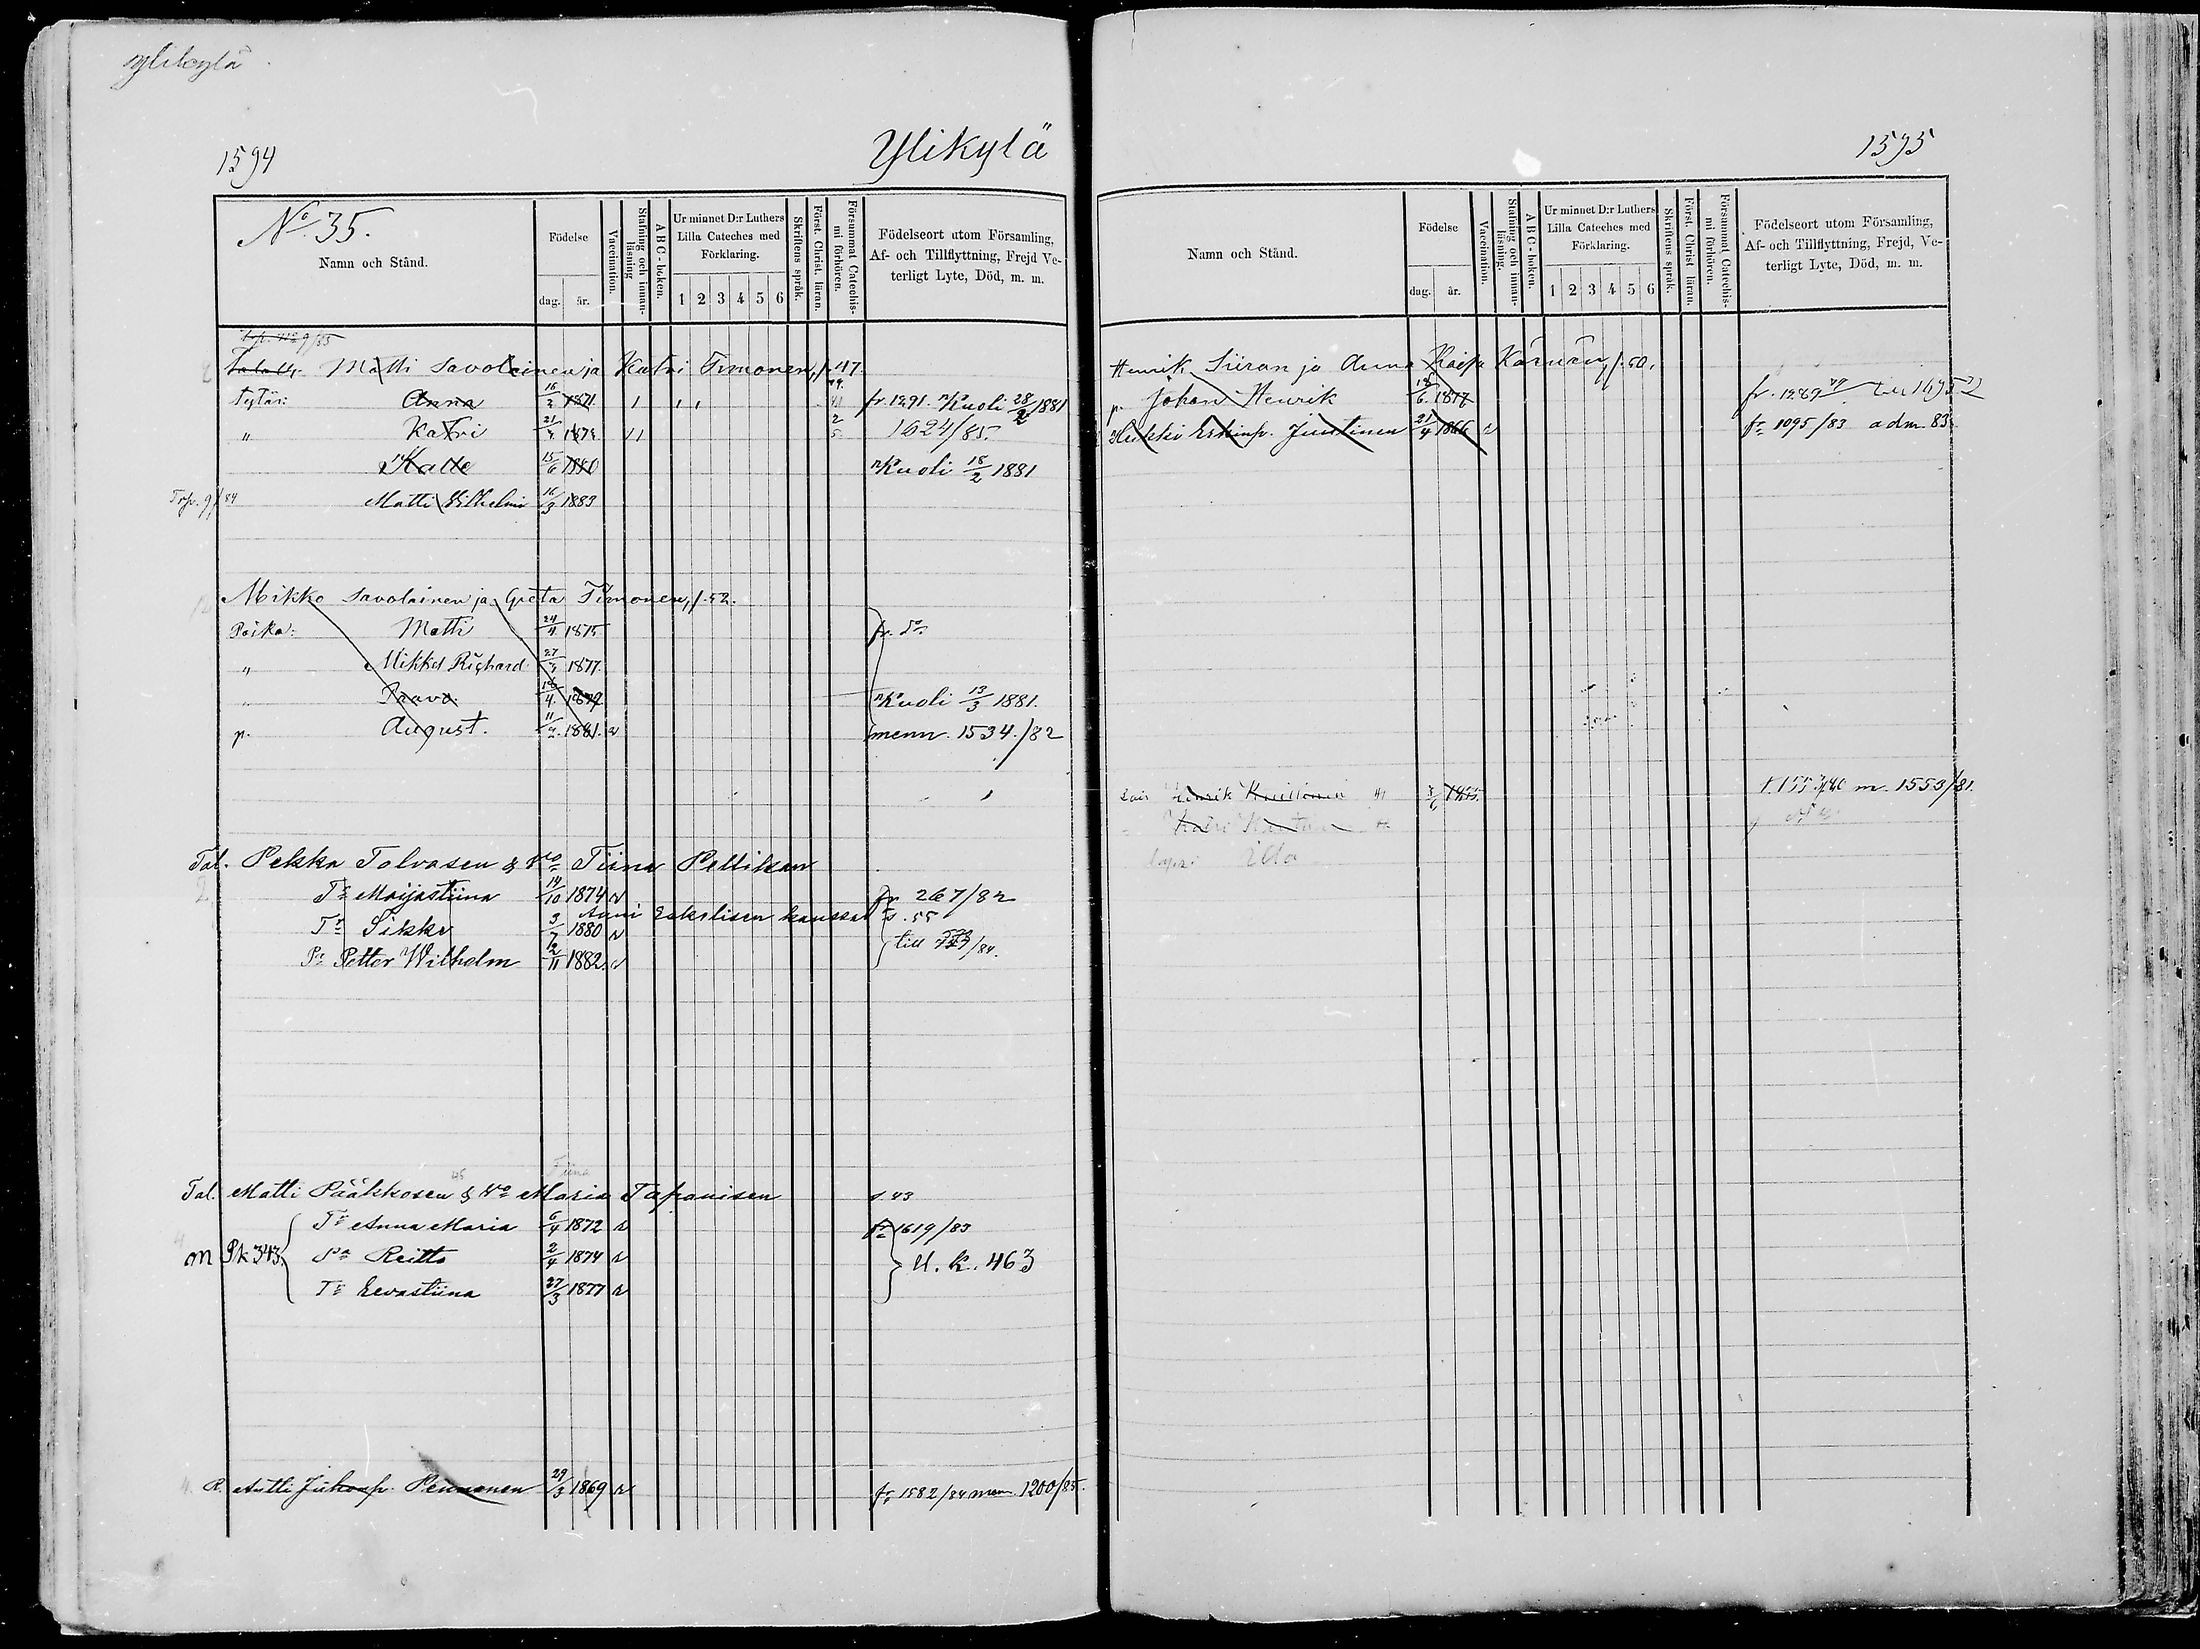 Ylikylä
1594
Ylikylä
No. 35.
Namn och Stånd.
Födelse
dag. år.
Vaccination.
Stafning och innan-läsning
A B C - boken.
Ur minnet D:r Luthers Lilla Cateches med Förklaring.
1 2 3 4 5 6
Skriftens språk.
Först. Christ. läran.
Försummat Catechis-mi förhören.
Födelseort utom Församling, Af- och Tillflyttning, Frejd Ve-terligt Lyte, Död, m. m.
Matti Savolainen ja Katri Timonen, s. 47.
tytär: Anna 16/2 1871 fr. 1291. Kuoli 28/2 1881
" Katri 1624/85.
Kalle 15/6 1880 Kuoli 18/2 1881
Trp. 9/84 Matti Vilhelmi 16/3 1883
Mikko Savolainen ja Greta Timonen, s. 52.
Poika: Matti 24/4 1875 fr. do.
" Mikkel Richard 27/3 1877
" Paavo 18/4 1879 Kuoli 13/3 1881.
p. August. 11/2 1881. v menn. 1534./82
Tal. Pekka Tolvasen & Vo Tiina Pellikan
Tr Maijastiina 14/10 1874 v fr 267/82
Anni Eskelisen kanssa s. 55
Tr Sikke 3/7 1880 v
till /84.
Pa Petter Wilhelm 12/11 1882 v
Tiina
Tal. Matti Pääkkosen & Vo Maria Tapanisen s. 43
Tr Anna Maria 6/4 1872 v fr 1619/83
m Pk 343 Pa Reitto 2/4 1874 v U. k. 463
Tr Eevastiina 27/3 1877 v
R. Antti Juhonp. Pennanen 29/3 1869 v fr. 1582/84 men. 1200/85.
1595
Namn och Stånd.
Födelse
dag. år.
Vaccination.
Stafning och innan-läsning.
A B C - boken.
Ur minnet D:r Luthers Lilla Cateches med Förklaring.
1 2 3 4 5 6
Skriftens språk.
Först. Christ läran.
Försummat Catechis-mi förhören.
Födelseort utom Församling, Af- och Tillflyttning, Frejd, Ve-terligt Lyte, Död, m. m.
Henrik Siiran ja Anna Kaisa Kärnän, s. 50.
p. Johan Henrik 18/6 1877 fr. 1289
Heikki Erkinp. Juntinen 21/4 1866 v fr 1095/83 adm 83
Henrik m. 1553/81.